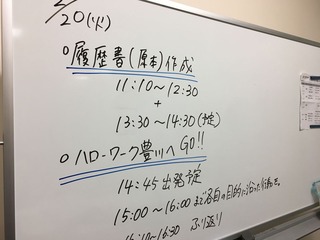 2/20(火)
○履歴書(原本)作成
11:10〜12:30
+
13:30〜14:30(予定)
○ハローワーク豊川へGO!!
14:45出発予定
15:00〜16:00まで各自の目的に沿った行動を。
16:10〜16:30 ふり返り